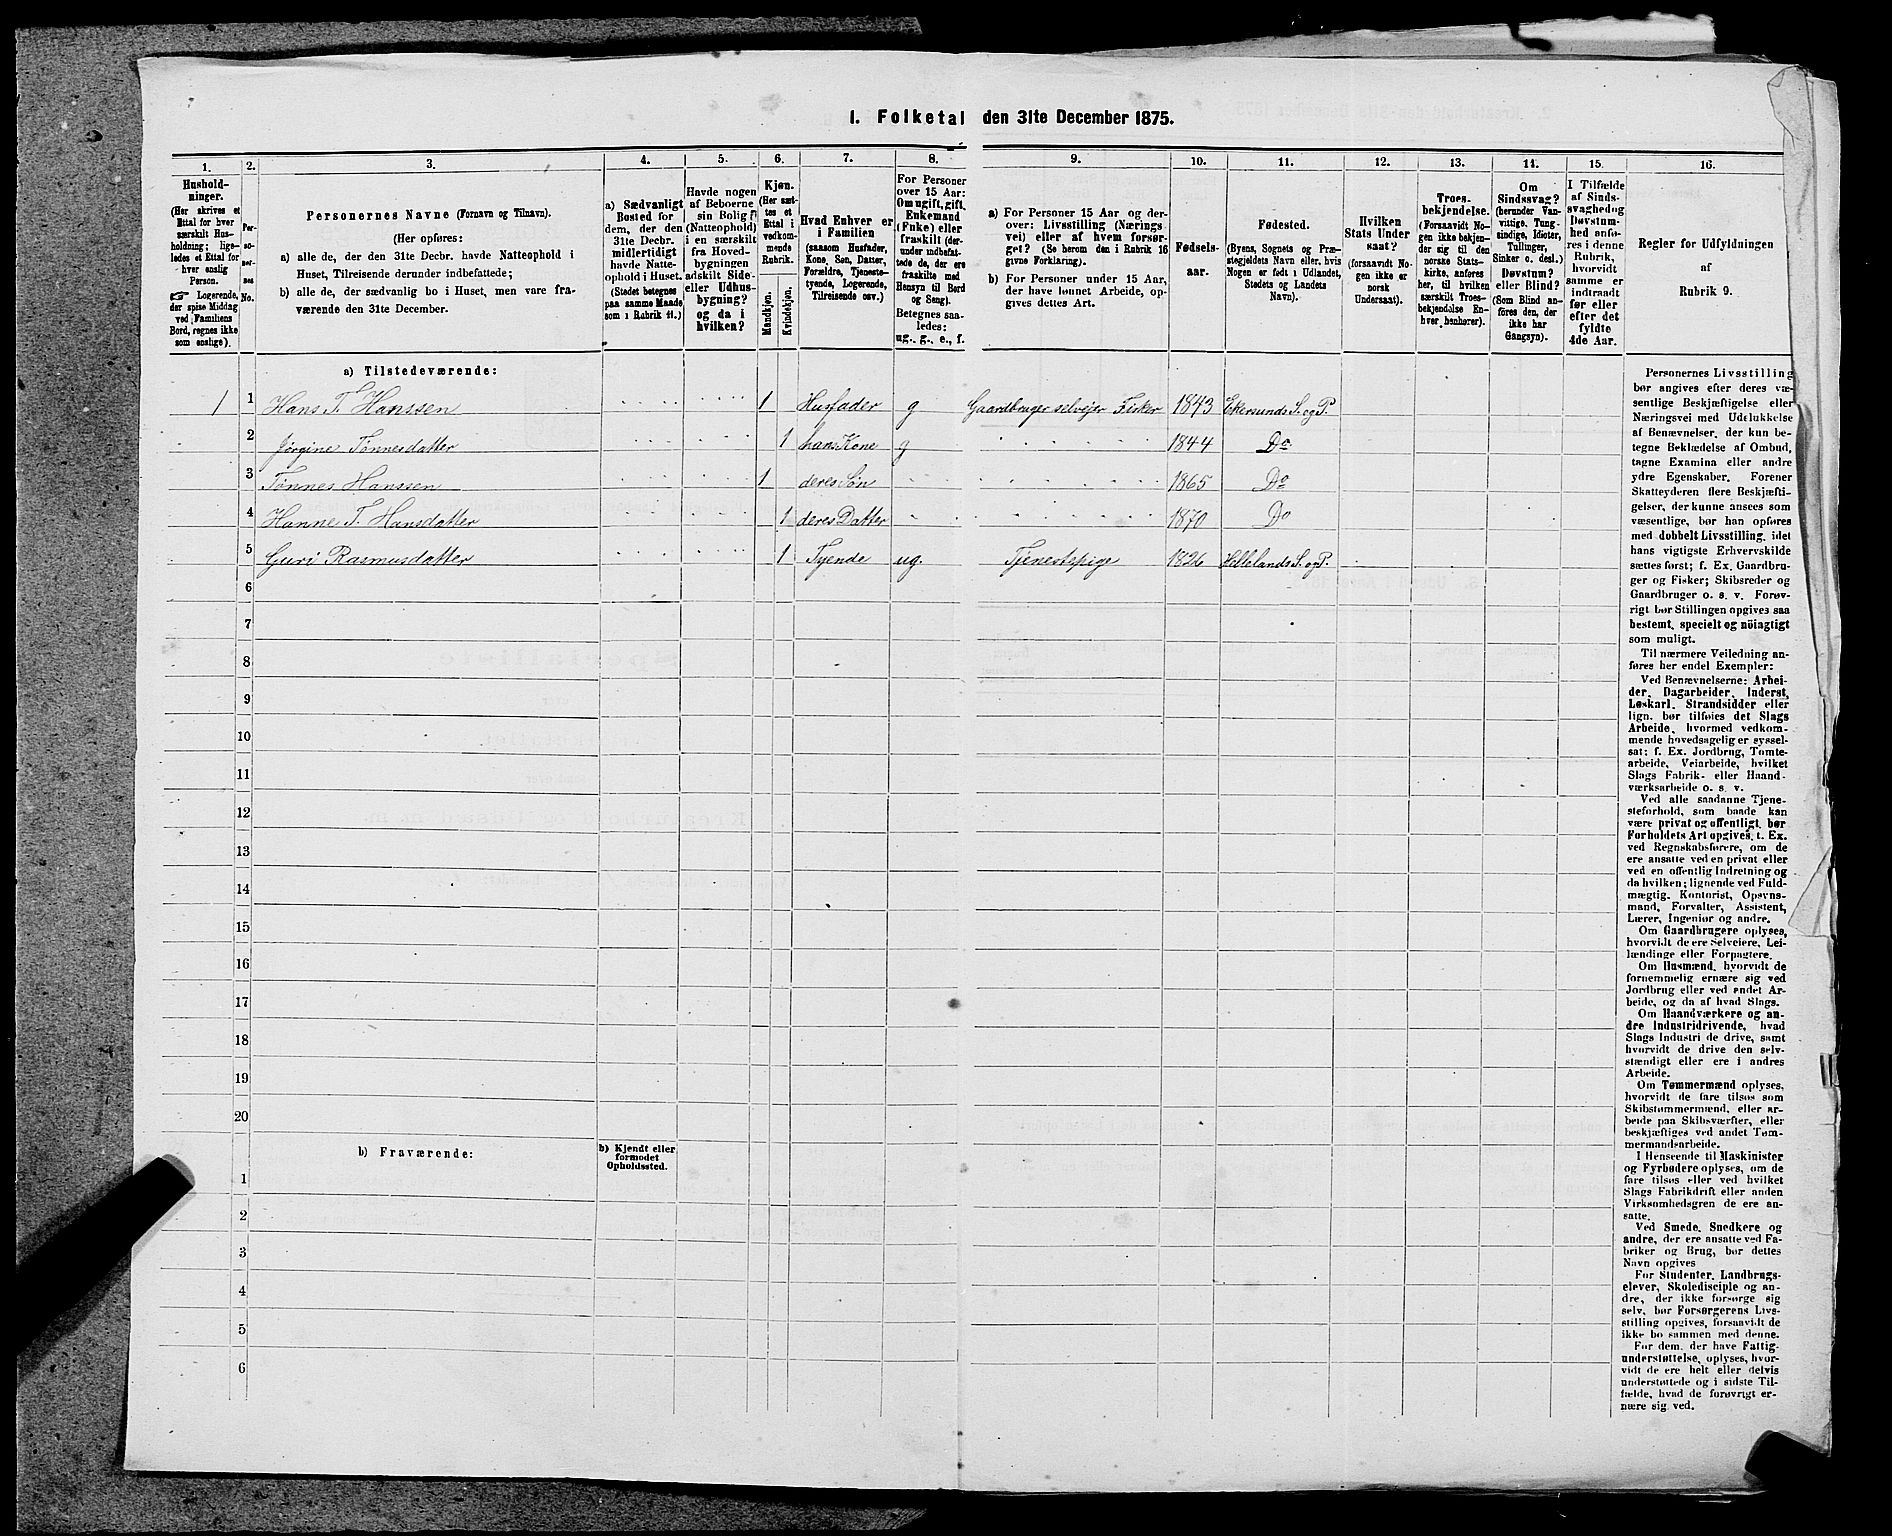 I. Folketal den 31te December 1875.
1. 2. 3. 4. 5. 6. 7. 8. 9. 10. 11. 12. 13. 14. 15. 16.
Hushold-
ninger.
(Her skrives et
Ettal for hver
særskilt Hus-
holdning; lige-
ledes et Ettal for
hver enslig
Person.
☞ Logerende,
der spise Middag
ved Familiens
Bord, regnes ikke
som enslige).
Per-
so-
ner-
nes
No.
Personernes Navne (Fornavn og Tilnavn).
(Her opføres:
a) alle de, der den 31te Decbr. havde Natteophold i
Huset, Tilreisende derunder indbefattede;
b) alle de, der sædvanlig bo i Huset, men vare fra-
værende den 31te December.
a) Sædvanligt
Bosted for
dem, der den
31te Decbr.
midlertidigt
havde Natte-
ophold i Huset.
(Stedet betegnes
paa samme Maade
som i Rubrik 11.)
Havde nogen
af Beboerne
sin Bolig
(Natteophold)
i en særskilt
fra Hoved-
bygningen
adskilt Side-
eller Udhus-
bygning?
og da i
hvilken?
Kjøn.
(Her sæt-
tes et
Ettal i
vedkom-
mende
Rubrik.
Mandkjøn.
Kvindekjøn.
Hvad Enhver er
i Familien
(saasom Husfader,
Kone, Søn, Datter,
Forældre, Tjeneste-
tyende, Logerende,
Tilreisende osv.)
For Personer
over 15 Aar:
Om ugift, gift,
Enkemand
(Enke) eller
fraskilt (der-
under indbefat-
tede de, der ere
fraskilte med
Hensyn til Bord
og Seng).
Betegnes saa-
ledes:
ug., g., e., f.
a) For Personer 15 Aar og der-
over: Livsstilling (Nærings-
vei) eller af hvem forsør-
get? (Se herom den i Rubrik 16
givne Forklaring).
b) For Personer under 15 Aar,
der have lønnet Arbeide, op-
gives dettes Art.
Fødsels-
aar.
Fødested.
(Byens, Sognets og Præ-
stegjeldets Navn eller, hvis
Nogen er født i Udlandet,
Stedets og Landets
Navn).
Hvilken
Stats Under
saat?
(forsaavidt No-
gen ikke er
norsk
Undersaat).
Troes-
bekjendelse.
(Forsaavidt No-
gen ikke bekjen-
der sig til den
norske Stats-
kirke, anføres
her, til hvilken
særskilt Troes-
bekjendelse En-
hver henhører).
Om
Sindssvag?
(herunder Van-
vittige, Tung-
sindige, Idioter,
Tullinger,
Sinker o. desl.)
Døvstum?
eller Blind?
(Som Blind an-
føres den, der
ikke har
Gangsyn).
I Tilfælde
af Sinds-
svaghed og
Døvstum-
hed anfø-
res i denne
Rubrik,
hvorvidt
samme er
indtraadt
før eller
efter det
fyldte
4de Aar.
Regler for Udfyldningen
af
Rubrik 9.
a) Tilstedeværende:
1 1 Hans T. Hanssen 1 Husfader g Gaardbruger selvejer Fisker 1843 Ekersunds S. og P.
2 Jørgine Tønnesdatter 1 hans Kone g 1844 Do
3 Tønnes Hanssen 1 deres Søn 1865 Do
4 Hanne T. Hansdatter 1 deres Datter 1870 Do
5 Guri Rasmusdatter 1 Tyende ug. Tjenestepige 1826 Hellelands S. og P.
6
7
8
9
10
11
12
13
14
15
16
17
18
19
20
b) Fraværende:
b) Kjendt eller
formodet
Opholdssted.
1
2
3
4
5
6
Personernes Livsstilling
bør angives efter deres væ-
sentlige Beskjæftigelse eller
Næringsvei med Udelukkelse
af Benævnelser, der kun be-
tegne Beklædelse af Ombud,
tagne Examina eller andre
ydre Egenskaber. Forener
Skatteyderen flere Beskjæfti-
gelser, der kunne ansees som
væsentlige, bør han opføres
med dobbelt Livsstilling, idet
hans vigtigste Erhvervskilde
sættes først; f. Ex. Gaardbru-
ger og Fisker; Skibsreder og
Gaardbruger o. s. v. Forøv-
rigt bør Stillingen opgives saa
bestemt, specielt og nöiagtigt
som muligt.
Til nærmere Veiledning an-
føres her endel Exempler:
Ved Benævnelserne: Arbei-
der, Dagarbeider, Inderst,
Løskarl, Strandsidder eller
lign. bør tilføies det Slags
Arbeide, hvormed vedkom-
mende hovedsagelig er syssel-
sat; f. Ex. Jordbrug, Tomte-
arbeide, Veiarbeide, hvilket
Slags Fabrik- eller Haand-
værksarbeide o. s. v.
Ved alle saadanne Tjene-
steforhold, som baade kan
være privat og offentligt, bør
Forholdets Art opgives, t. Ex.
ved Regnskabsførere, om de
ere ansatte ved en privat eller
ved en offentlig Indretning og
da hvilken; lignende ved Fuld-
mægtig, Kontorist, Opsyns-
mand, Forvalter, Assistent,
Lærer, Ingeniør og andre.
Om Gaardbrugere oplyses,
hvorvidt de ere Selveiere, Lei-
lændinge eller Forpagtere.
Om Husmænd, hvorvidt de
fornemmelig ernære sig ved
Jordbrug eller ved andet Ar-
beide, og da af hvad Slags.
Om Haandværkere og an-
dre Industridrivende, hvad
Slags Industri de drive, samt
hvorvidt de drive den selv-
stændigt eller ere i andres
Arbeide.
Om Tømmermænd oplyses,
hvorvidt de fare tilsøs som
Skibstømmermænd, eller ar-
beide paa Skibsværfter, eller
beskjæftiges ved andet Tøm-
mermandsarbeide.
I Henseende til Maskinister
og Fyrbødere oplyses, om de
fare tilsøs eller ved hvilket
Slags Fabrikdrift eller anden
Virksomhedsgren de ere an-
satte.
Ved Smede, Snedkere og
andre, der ere ansatte ved Fa-
briker og Brug, bør dettes
Navn opgives
For Studenter, Landbrugs-
elever, Skoledisciple og an-
dre, der ikke forsørge sig
selv, bør Forsørgerens Livs-
stilling opgives, forsaavidt de
ikke bo sammen med denne.
For dem, der have Fattig-
understøttelse, oplyses, hvor-
vidt de ere helt eller delvis
understøttede og i sidste Til-
fælde, hvad de forøvrigt er-
nære sig ved.